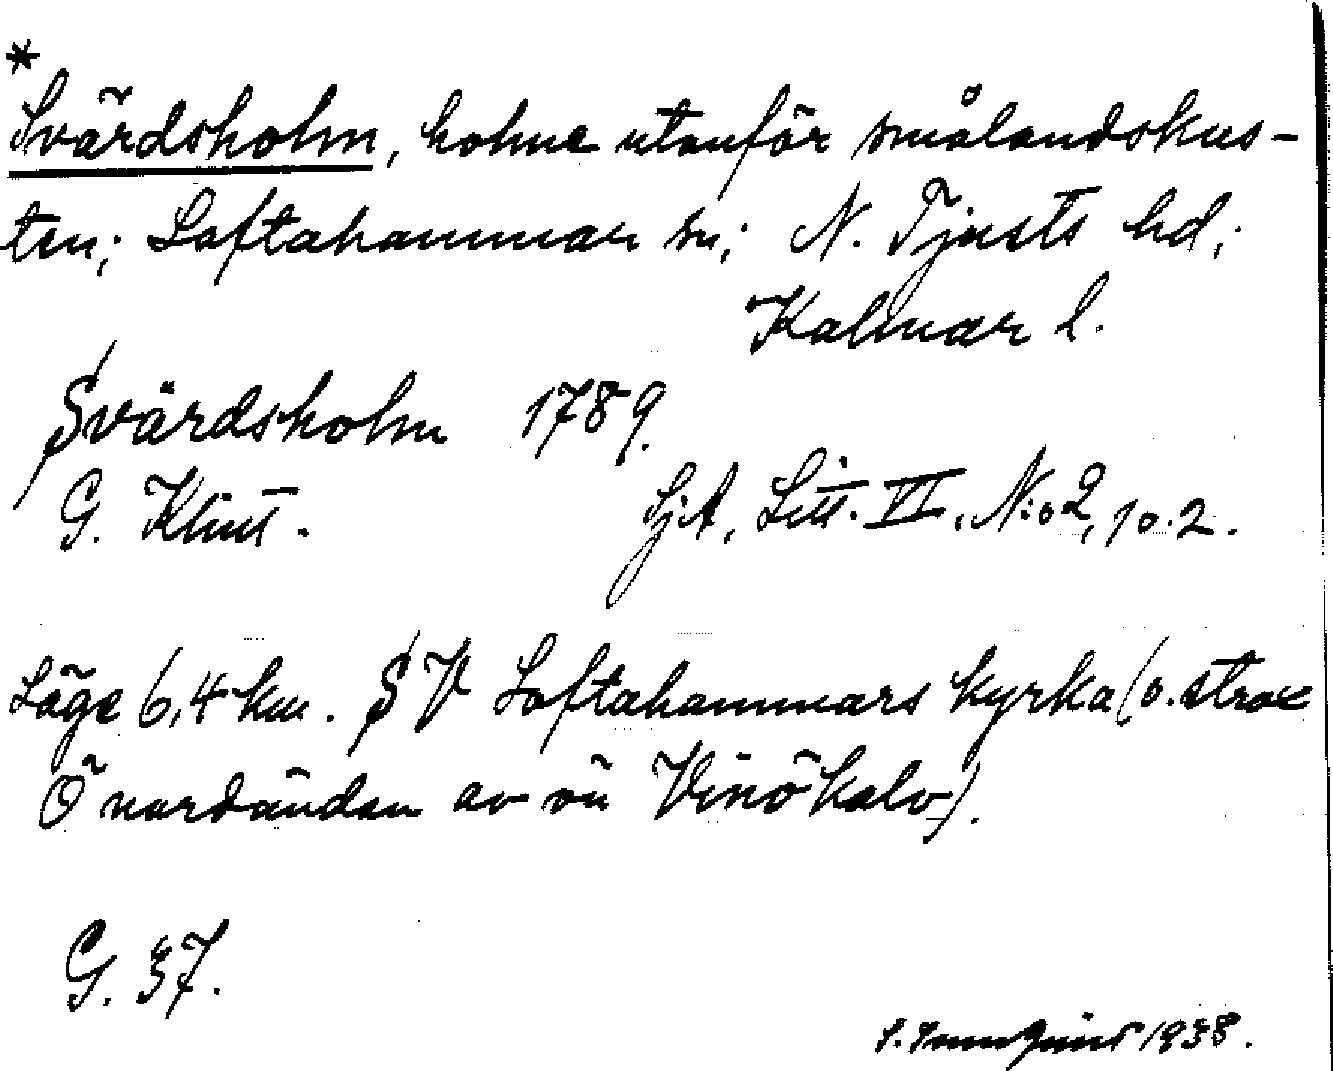 *
Svärdsholm, holme utanför smålandskus-
ten; Loftahammar sn; N. Tjusts hd;
Kalmar l.
Svärdsholm 1789.
G. Klint. SjA, Litt. VI, N:o 2, 10.2.
Läge 6,4 km. SV Loftahammars kyrka (o. strax
Ö nordändan av ön Vinökalv).
G. 37.
1938.